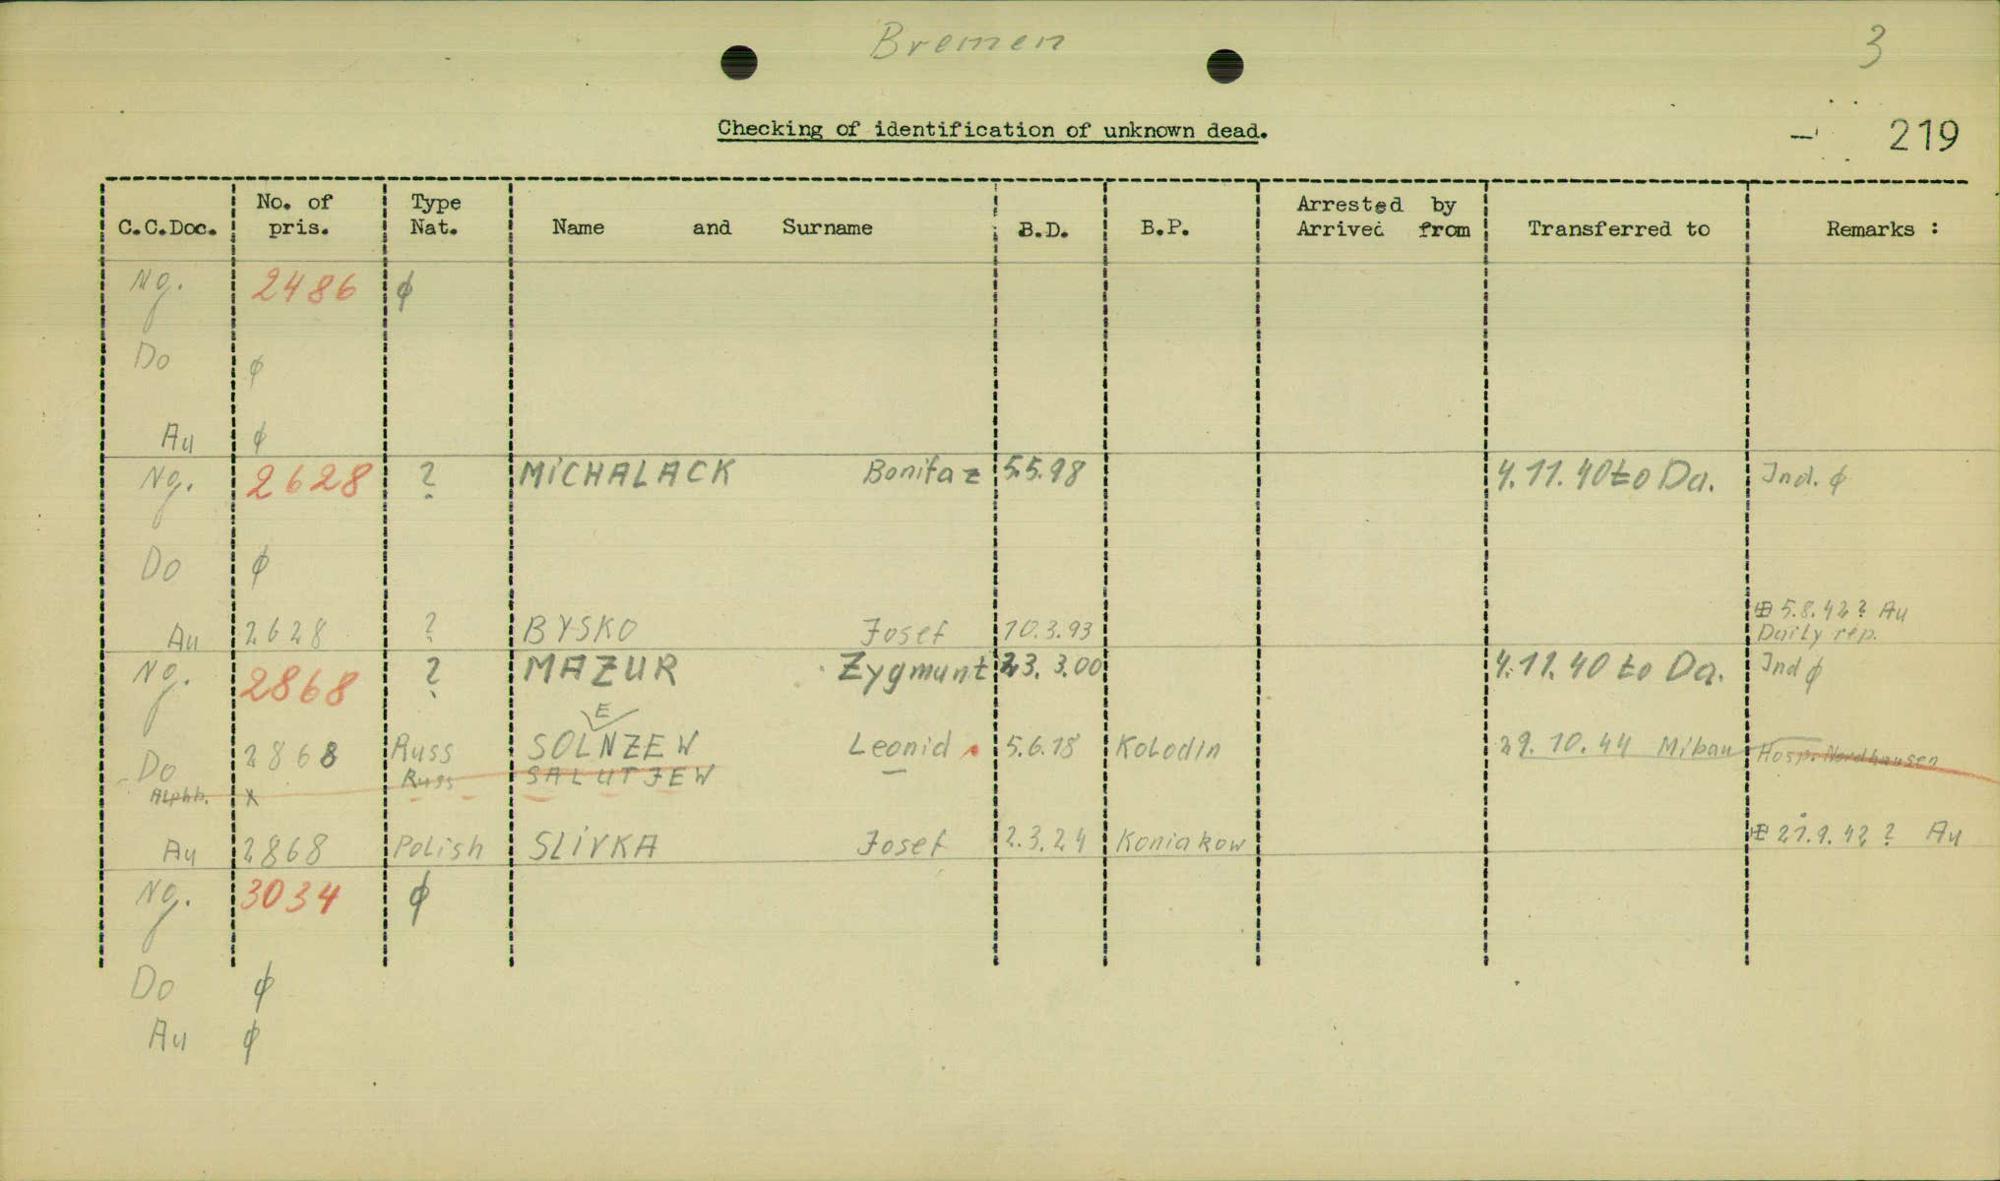 Bremen
3
Checking of identification of unknown dead.
219
C.C.Doc. No. of pris. Type Nat. Name and Surname B.D. B.P. Arrested by Arrived from Transferred to Remarks :
Ng. 2486 ϕ
Do ϕ
Au ϕ
Ng. 2628 ? MiCHALACK Bonifaz 5.5.98 4.11.40 to Da. Ind. ϕ
Do ϕ
Au 2628 ? BYSKO Josef 10.3.93 5.8.42? Au
Daily rep.
Ng. 2868 ? MAZUR Zygmunt 23.3.00 4.11.40 to Da. Ind ϕ
E
Do 2868 Russ SOLNZEW Leonid 5.6.18 Kolodin 29.10.44 Mibau Hosp. Nordhausen
Alphb. x Russ SALUTJEW
Au 2868 Polish SLiVKA Josef 2.3.24 Koniakow 21.9.42 ? Au
Ng. 3034 ϕ
Do ϕ
Au ϕ